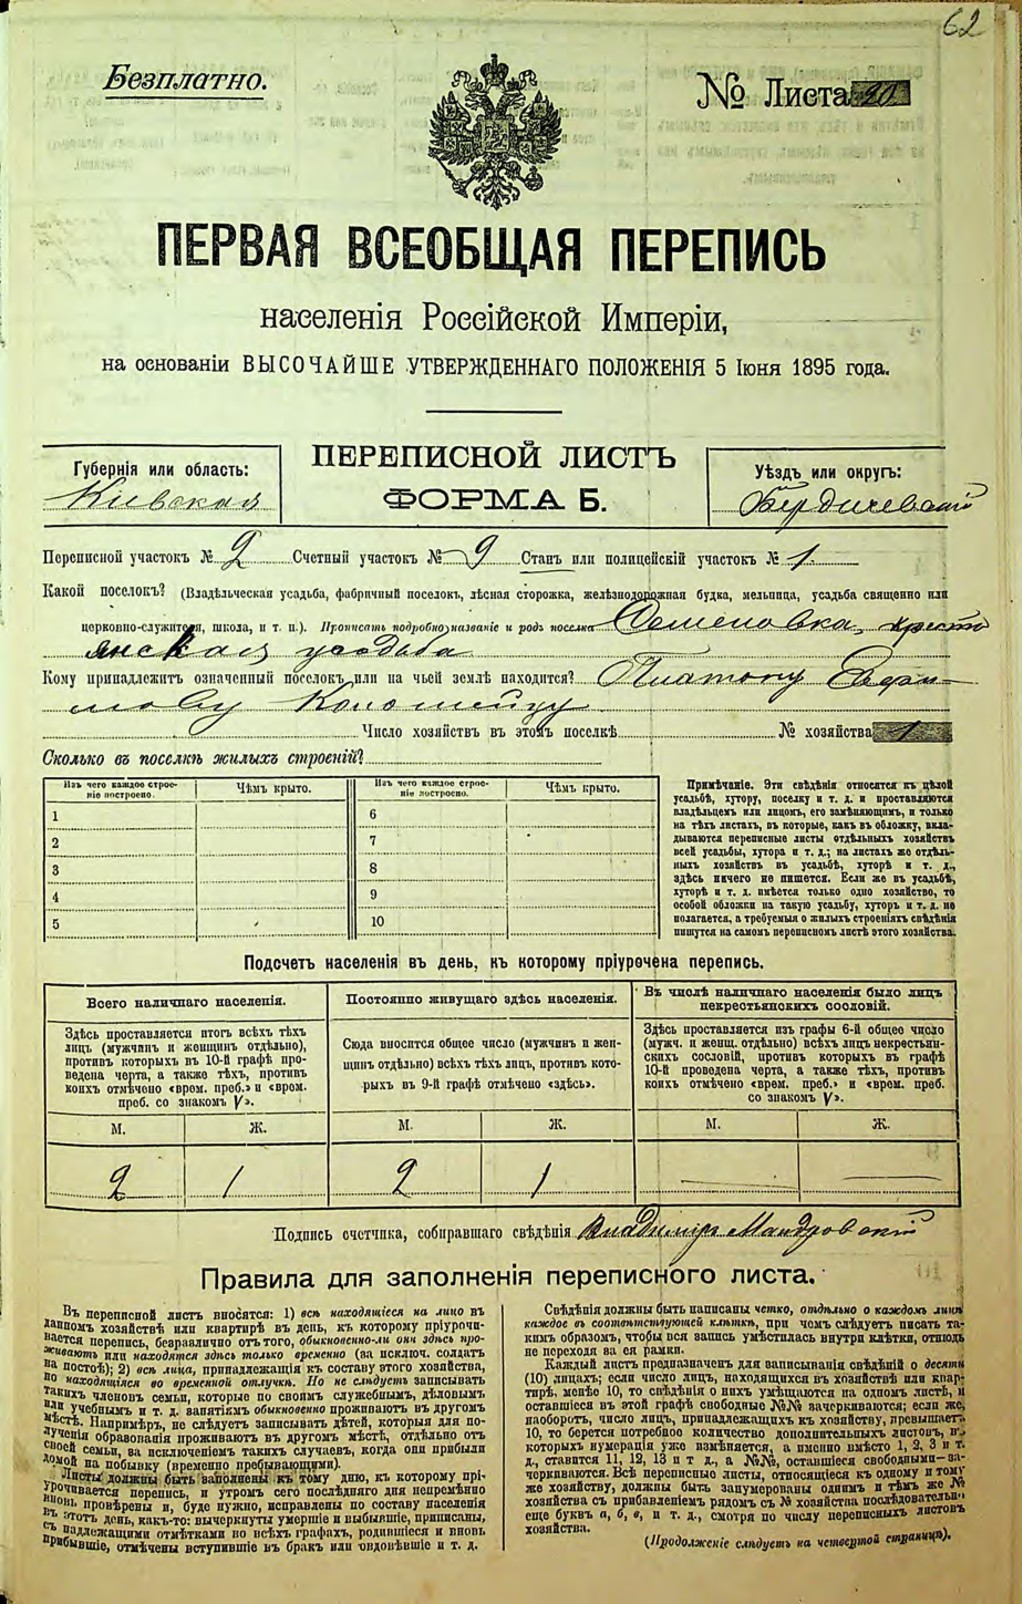 62
Безплатно.
№ Листа 20
ПЕРВАЯ ВСЕОБЩАЯ ПЕРЕПИСЬ
населенія Россійской Имперіи,
на основаніи ВЫСОЧАЙШЕ УТВЕРЖДЕННАГО ПОЛОЖЕНІЯ 5 Іюня 1895 года.
Губернія или область:
Кіевская
ПЕРЕПИСНОЙ ЛИСТЪ
ФОРМА Б.
Уѣздъ или округъ:
Бердичевскій
Переписной участокъ № 2 Счетный участокъ № 9 Станъ или полицейскій участокъ № 1.
Какой поселокъ? (Владѣльческая усадьба, фабричный поселокъ, лѣсная сторожка, желѣзнодорожная будка, мельница, усадьба священно или
церковно-служителя, школа, и т. п.). Прописать подробно названіе и родъ поселка крестъ
янская усадьба
Кому принадлежитъ означенный поселокъ или на чьей землѣ находится? Платону
Число хозяйствъ въ этомъ поселкѣ № хозяйства 1
Сколько въ поселкѣ жилыхъ строеній?
Изъ чего каждое строе-
ніе построено.
Чѣмъ крыто.
Изъ чего каждое строе-
ніе построено.
Чѣмъ крыто.
1 6
2 7
3 8
4 9
5 10
Примѣчаніе. Эти свѣдѣнія относятся къ цѣлой
усадьбѣ, хутору, поселку и т. д. и проставляются
владѣльцемъ или лицомъ, его замѣняющимъ, и только
на тѣхъ листахъ, въ которые, какъ въ обложку, вкла-
дываются переписные листы отдѣльныхъ хозяйствъ
всей усадьбы, хутора и т. д.; на листахъ же отдѣль-
ныхъ хозяйствъ въ усадьбѣ, хуторѣ и т. д.,
здѣсь ничего не пишется. Если же въ усадьбѣ,
хуторѣ и т. д. имѣется только одно хозяйство, то
особой обложки на такую усадьбу, хуторъ и т. д. не
полагается, а требуемыя о жилыхъ строеніяхъ свѣдѣнія
пишутся на самомъ переписномъ листѣ этого хозяйства.
Подсчетъ населенія въ день, къ которому пріурочена перепись.
Всего наличнаго населенія.
Здѣсь проставляется итогъ всѣхъ тѣхъ
лицъ (мужчинъ и женщинъ отдѣльно),
противъ которыхъ въ 10-й графѣ про-
ведена черта, а также тѣхъ, противъ
коихъ отмѣчено «врем. преб.» и «врем.
преб. со знакомъ V».
М. Ж.
2 1
Постоянно живущаго здѣсь населенія.
Сюда вносится общее число (мужчинъ и жен-
щинъ отдѣльно) всѣхъ тѣхъ лицъ, противъ кото-
рыхъ въ 9-й графѣ отмѣчено «здѣсь».
М. Ж.
2 1
Въ числѣ наличнаго населенія было лицъ
некрестьянскихъ сословій.
Здѣсь проставляется изъ графы 6-й общее число
(мужч. и женщ. отдѣльно) всѣхъ лицъ некрестьян-
скихъ сословій, противъ которыхъ въ графѣ
10-й проведена черта, а также тѣхъ, противъ
коихъ отмѣчено «врем. преб.» и «врем. преб.
со знакомъ V».
М. Ж.
— —
Подпись счетчика, собиравшаго свѣдѣнія Владиміръ Мандровскій
Правила для заполненія переписного листа.
Въ переписной листъ вносятся: 1) всѣ находящіеся на лицо въ
данномъ хозяйствѣ или квартирѣ въ день, къ которому пріурочи-
вается перепись, безразлично отъ того, обыкновенно-ли они здѣсь про-
живаютъ или находятся здѣсь только временно (за исключ. солдатъ
на постоѣ); 2) всѣ лица, принадлежащія къ составу этого хозяйства,
но находящіеся во временной отлучкѣ. Но не слѣдуетъ записывать
такихъ членовъ семьи, которые по своимъ служебнымъ, дѣловымъ
или учебнымъ и т. д. занятіямъ обыкновенно проживаютъ въ другомъ
мѣстѣ. Напримѣръ, не слѣдуетъ записывать дѣтей, которыя для по-
лученія образованія проживаютъ въ другомъ мѣстѣ, отдѣльно отъ
своей семьи, за исключеніемъ такихъ случаевъ, когда они прибыли
домой на побывку (временно пребывающими).
Листы должны быть заполнены къ тому дню, къ которому прі-
урочивается перепись, и утромъ сего послѣдняго дня непремѣнно
вновь провѣрены и, буде нужно, исправлены по составу населенія
въ этотъ день, какъ-то: вычеркнуты умершіе и выбывшіе, приписаны,
съ надлежащими отмѣтками во всѣхъ графахъ, родившіеся и вновь
прибывшіе, отмѣчены вступившіе въ бракъ или овдовѣвшіе и т. д.
Свѣдѣнія должны быть написаны четко, отдѣльно о каждомъ лицѣ
каждое въ соотвѣтствующей клѣткѣ, при чемъ слѣдуетъ писать та-
кимъ образомъ, чтобы вся запись умѣстилась внутри клѣтки, отнюдь
не переходя за ея рамки.
Каждый листъ предназначенъ для записыванія свѣдѣній о десяти
(10) лицахъ; если число лицъ, находящихся въ хозяйствѣ или квар-
тирѣ, менѣе 10, то свѣдѣнія о нихъ умѣщаются на одномъ листѣ, и
оставшіеся въ этой графѣ свободные №№ зачеркиваются; если же,
наоборотъ, число лицъ, принадлежащихъ къ хозяйству, превышаетъ
10, то берется потребное количество дополнительныхъ листовъ, въ
которыхъ нумерація уже измѣняется, а именно вмѣсто 1, 2, 3 и т.
д., ставится 11, 12, 13 и т. д., а №№, оставшіеся свободными—за-
черкиваются. Всѣ переписные листы, относящіеся къ одному и тому
же хозяйству, должны быть занумерованы однимъ и тѣмъ же №
хозяйства съ прибавленіемъ рядомъ съ № хозяйства послѣдовательно
еще буквъ а, б, в, и т. д., смотря по числу переписныхъ листовъ
хозяйства.
(Продолженіе слѣдуетъ на четвертой страницѣ).